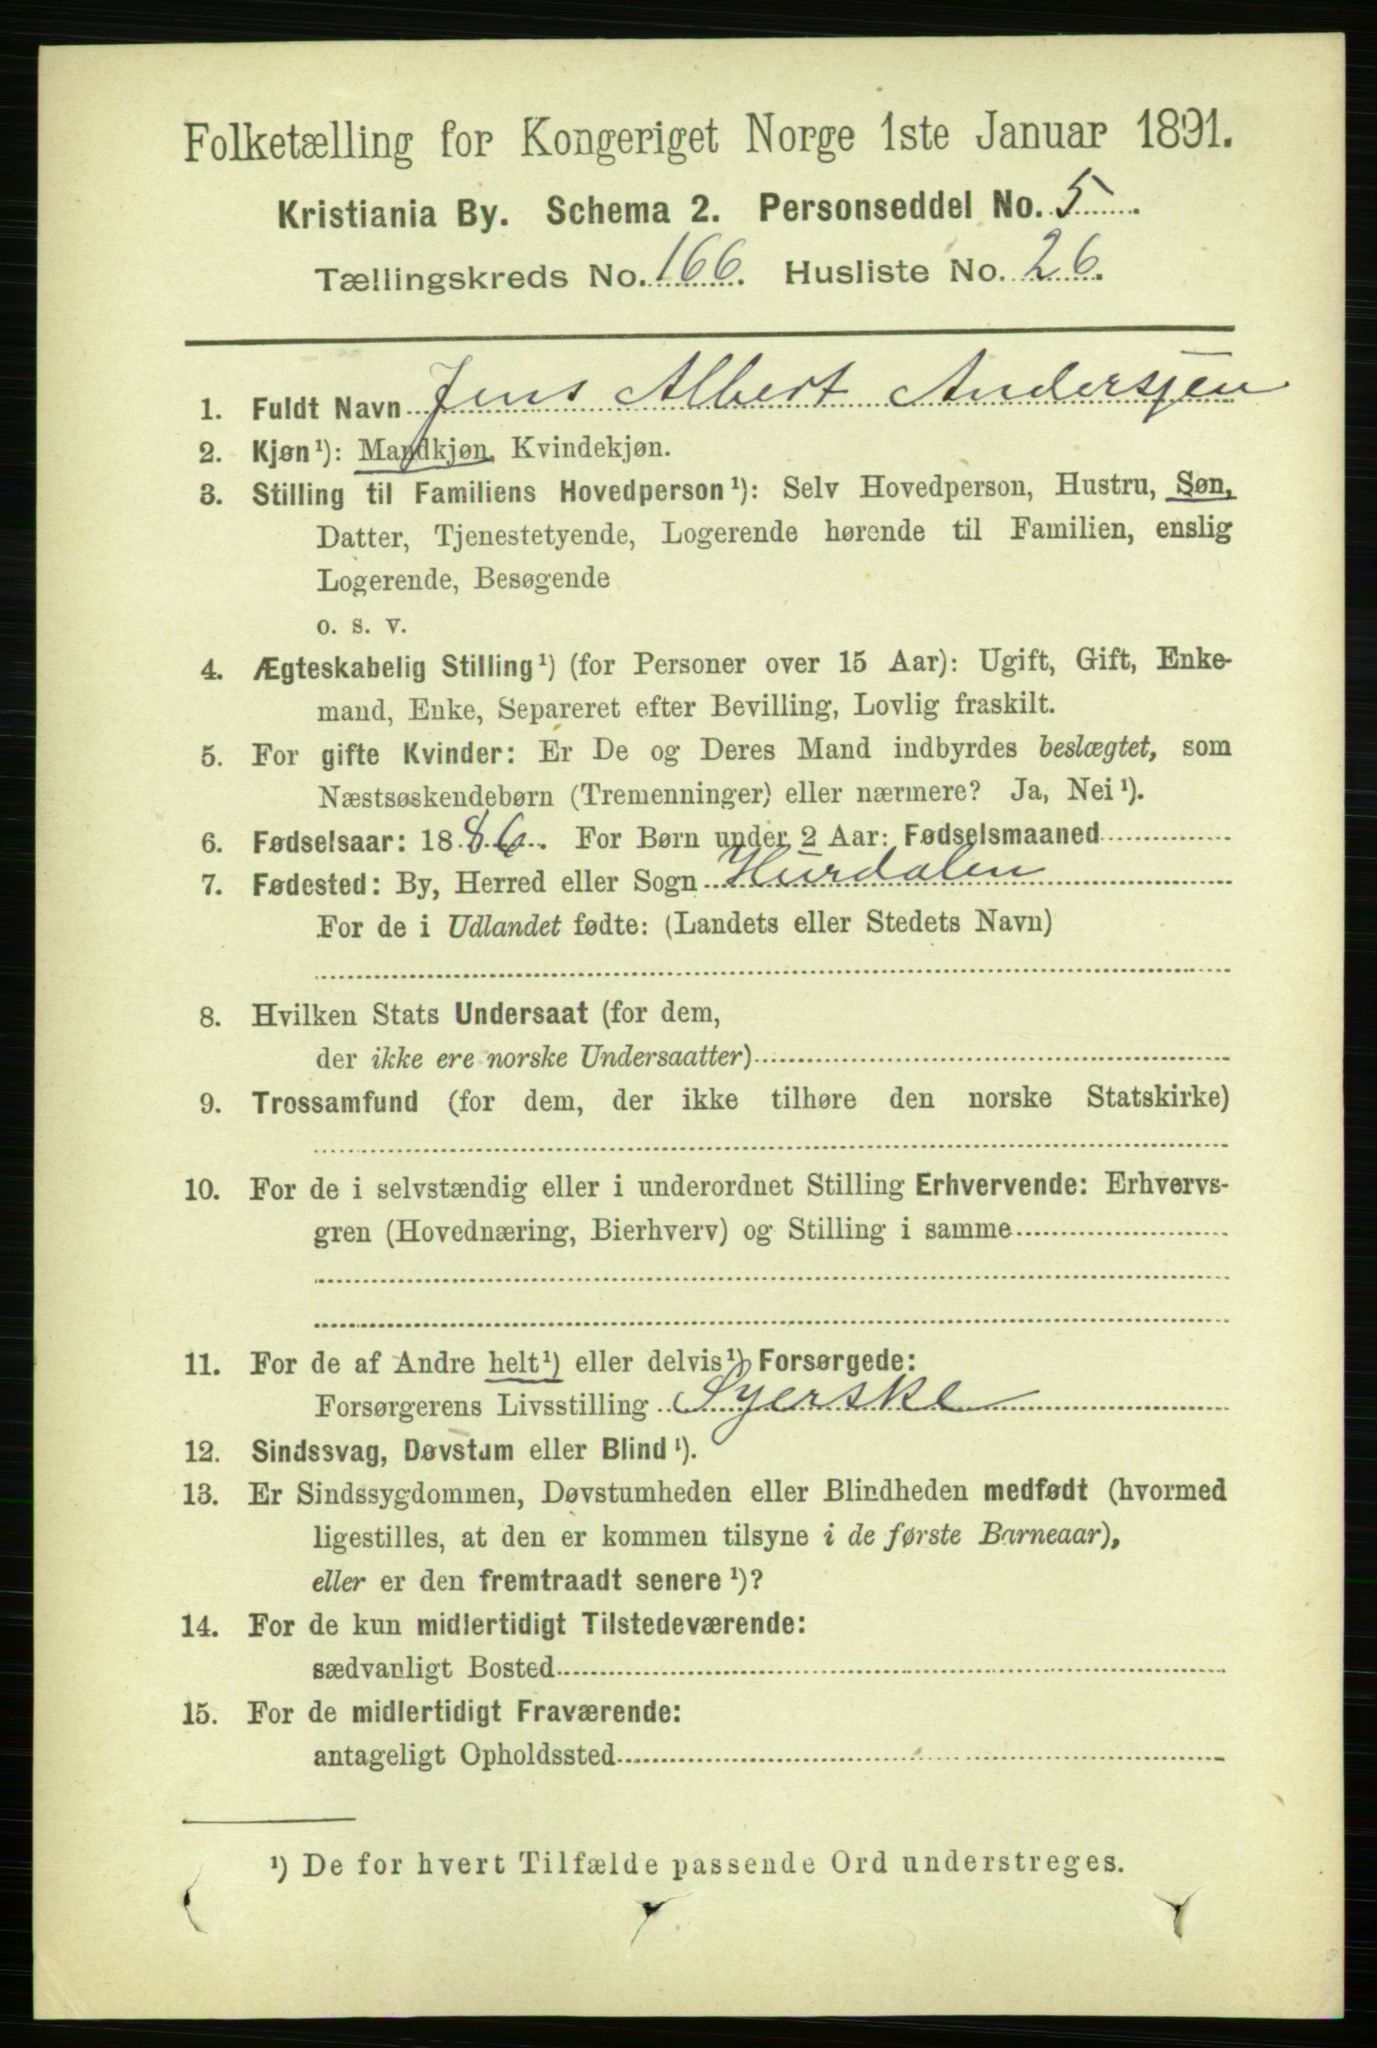 Folketælling for Kongeriget Norge 1ste Januar 1891.
Kristiania By. Schema 2. Personseddel No. 5
Tællingskreds No. 166. Husliste No. 26.
1. Fuldt Navn Jens Albert Andersjen
2. Kjøn¹): Mandkjøn, Kvindekjøn.
3. Stilling til Familiens Hovedperson¹): Selv Hovedperson, Hustru, Søn,
Datter, Tjenestetyende, Logerende hørende til Familien, enslig
Logerende, Besøgende
o. s. v.
4. Ægteskabelig Stilling¹) (for Personer over 15 Aar): Ugift, Gift, Enke-
mand, Enke, Separeret efter Bevilling, Lovlig fraskilt.
5. For gifte Kvinder: Er De og Deres Mand indbyrdes beslægtet, som
Næstsøskendebørn (Tremenninger) eller nærmere? Ja, Nei¹).
6. Fødselsaar: 1886. For Børn under 2 Aar: Fødselsmaaned
7. Fødested: By, Herred eller Sogn Hurdalen
For de i Udlandet fødte: (Landets eller Stedets Navn)
8. Hvilken Stats Undersaat (for dem,
der ikke ere norske Undersaatter)
9. Trossamfund (for dem, der ikke tilhøre den norske Statskirke)
10. For de i selvstændig eller i underordnet Stilling Erhvervende: Erhvervs-
gren (Hovednæring, Bierhverv) og Stilling i samme
11. For de af Andre helt¹) eller delvis¹) Forsørgede:
Forsørgerens Livsstilling Syerske
12. Sindssvag, Døvstum eller Blind¹).
13. Er Sindssygdommen, Døvstumheden eller Blindheden medfødt (hvormed
ligestilles, at den er kommen tilsyne i de første Barneaar),
eller er den fremtraadt senere¹)?
14. For de kun midlertidigt Tilstedeværende:
sædvanligt Bosted
15. For de midlertidigt Fraværende:
antageligt Opholdssted
¹) De for hvert Tilfælde passende Ord understreges.